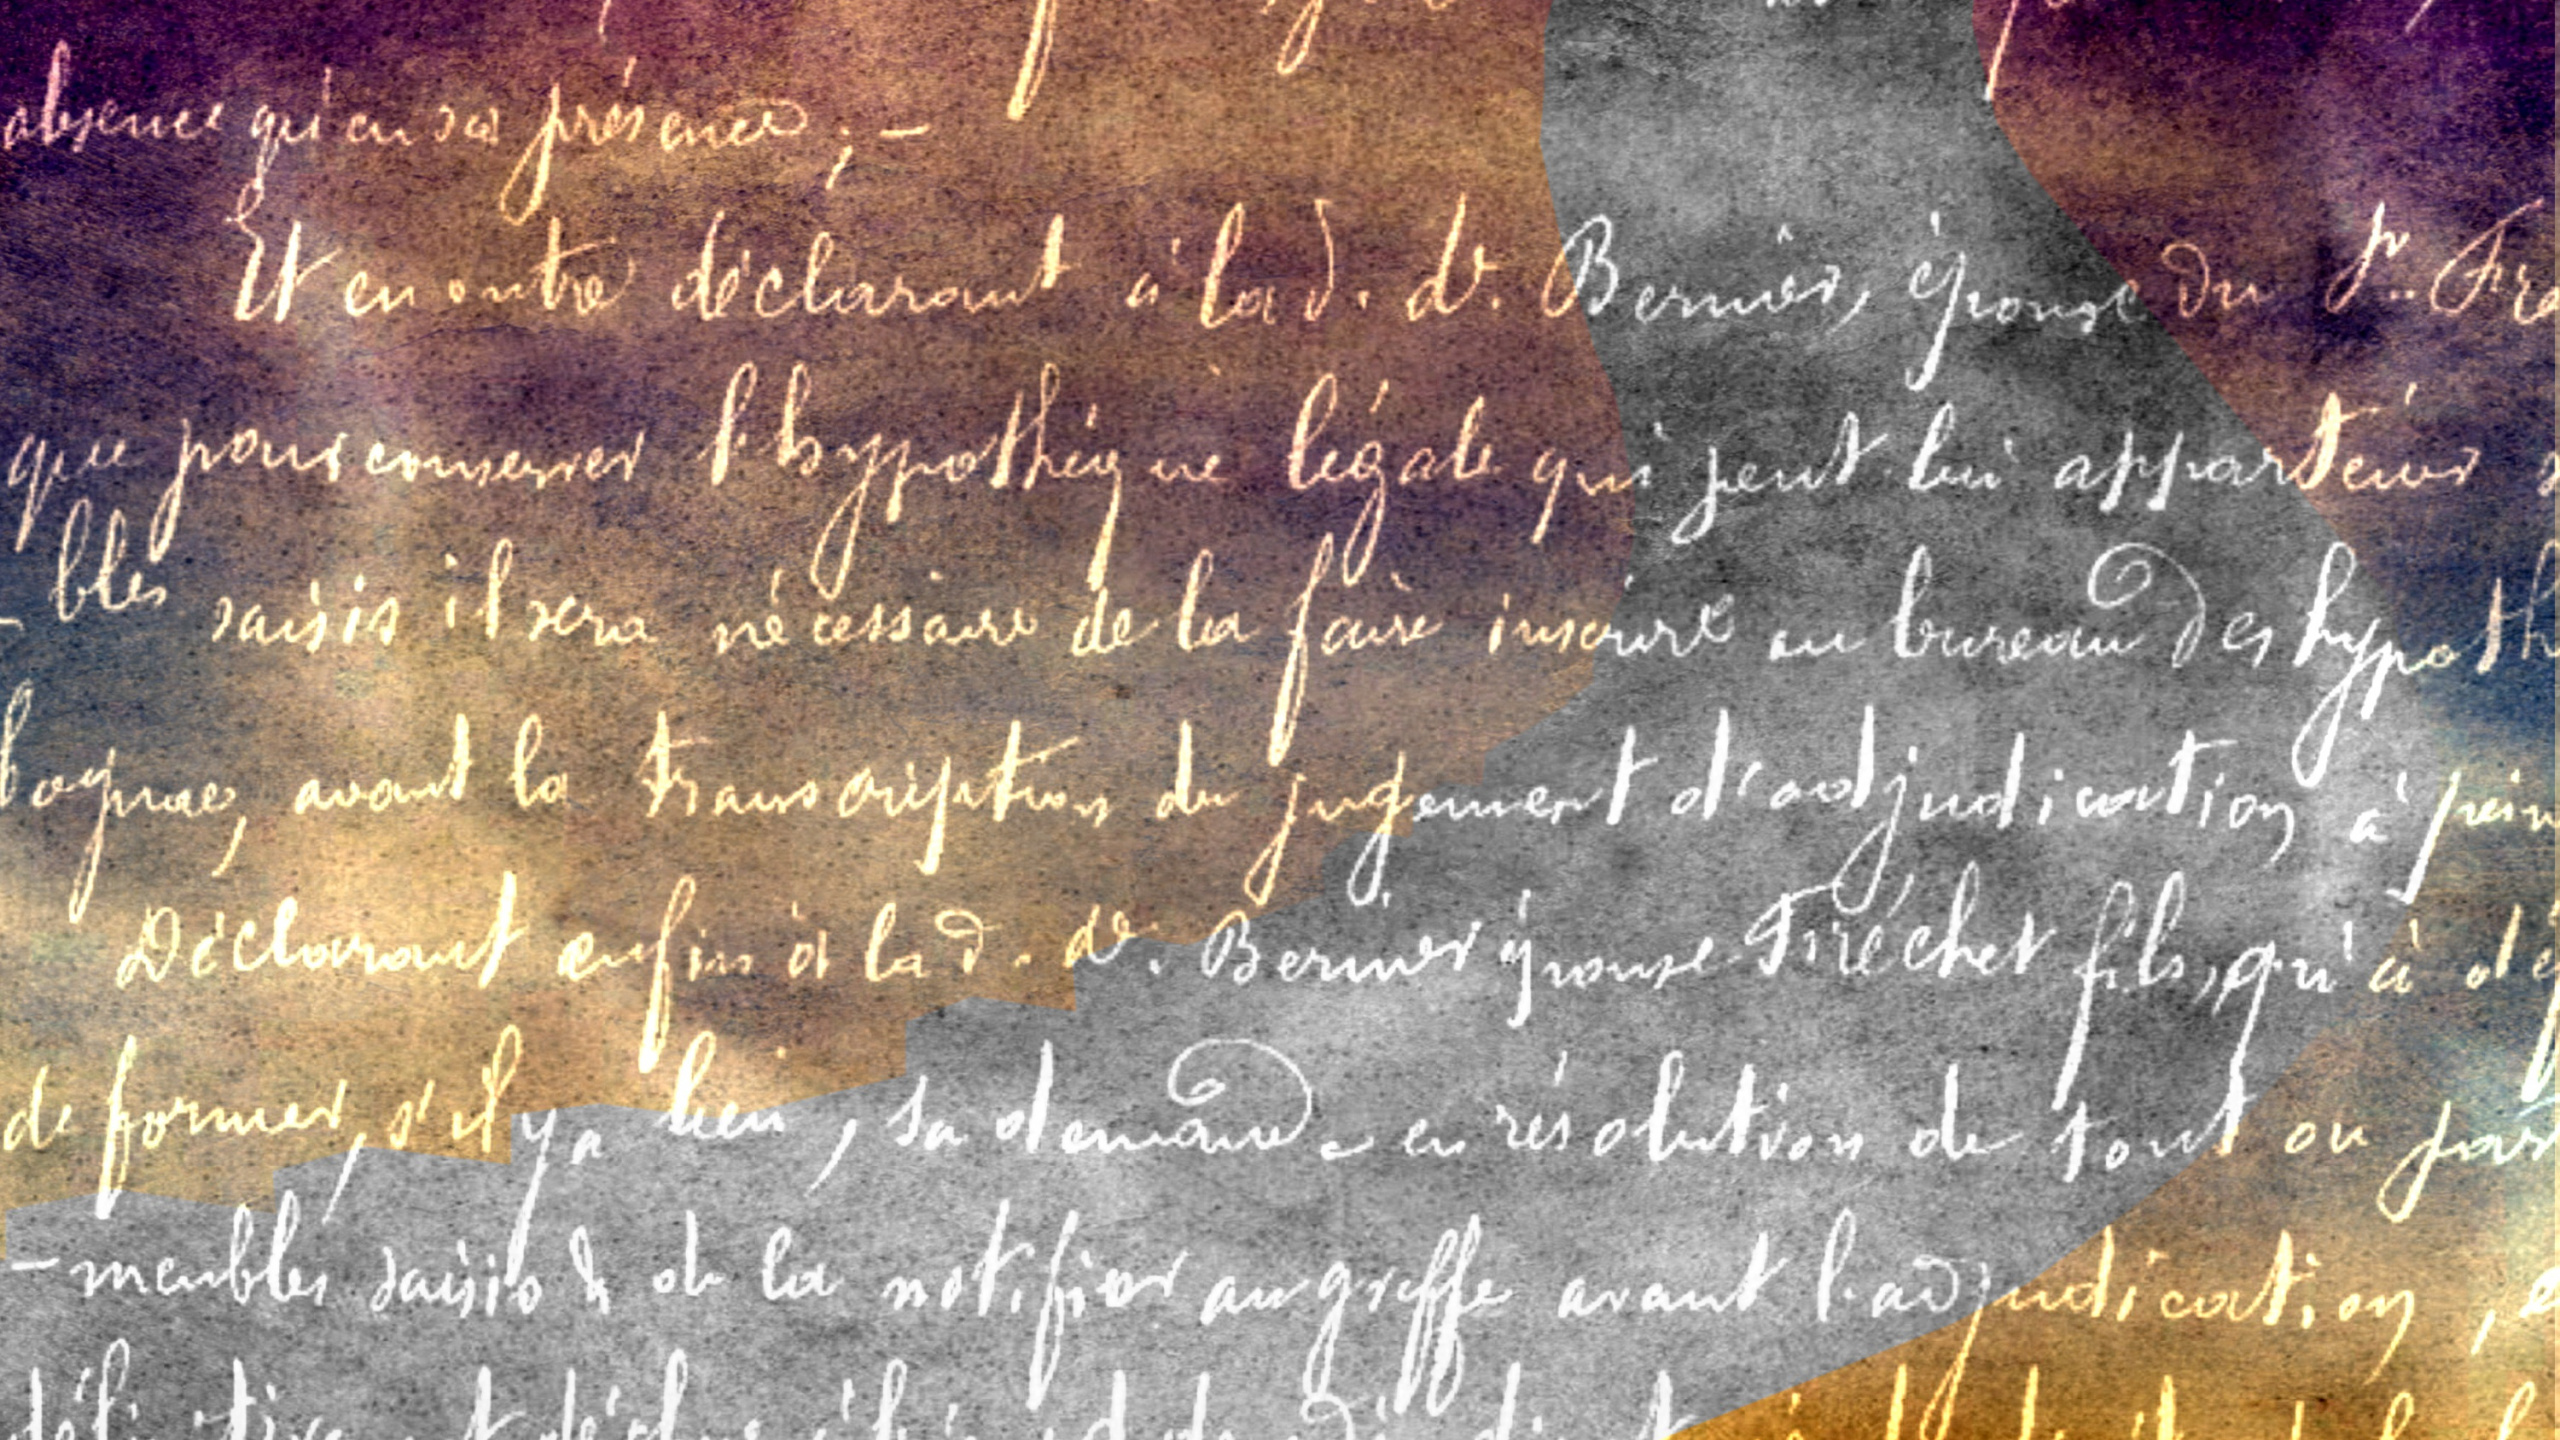 absence qu'en sa présence ; –
Et en outre déclarant à la d. de. Bernier, épouse du Sr. Fré
que pour conserver l'hypothèque légale qui peut lui appartenir
-bles saisis il sera nécessaire de la faire inscrire au bureau des hypoth
avant la transcription du jugement d'adjudication à pein
Déclarant enfin à la d. de. Bernier épouse Fréchet fils, qu'à dé
de former, s'il y a lieu, sa demande en résolution de tout ou par
-meubles saisis & de la notifier au greffe avant l'adjudication,